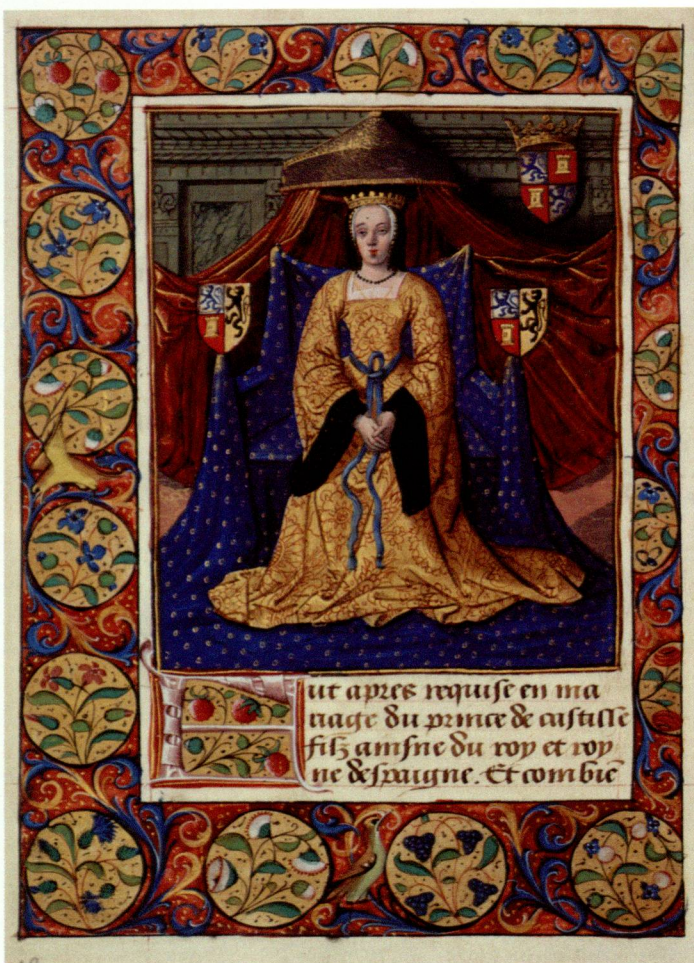 Fut apres requise en ma
riage du prince de castille
filz ainsne du roy et roy
ne despaigne. Et combiē